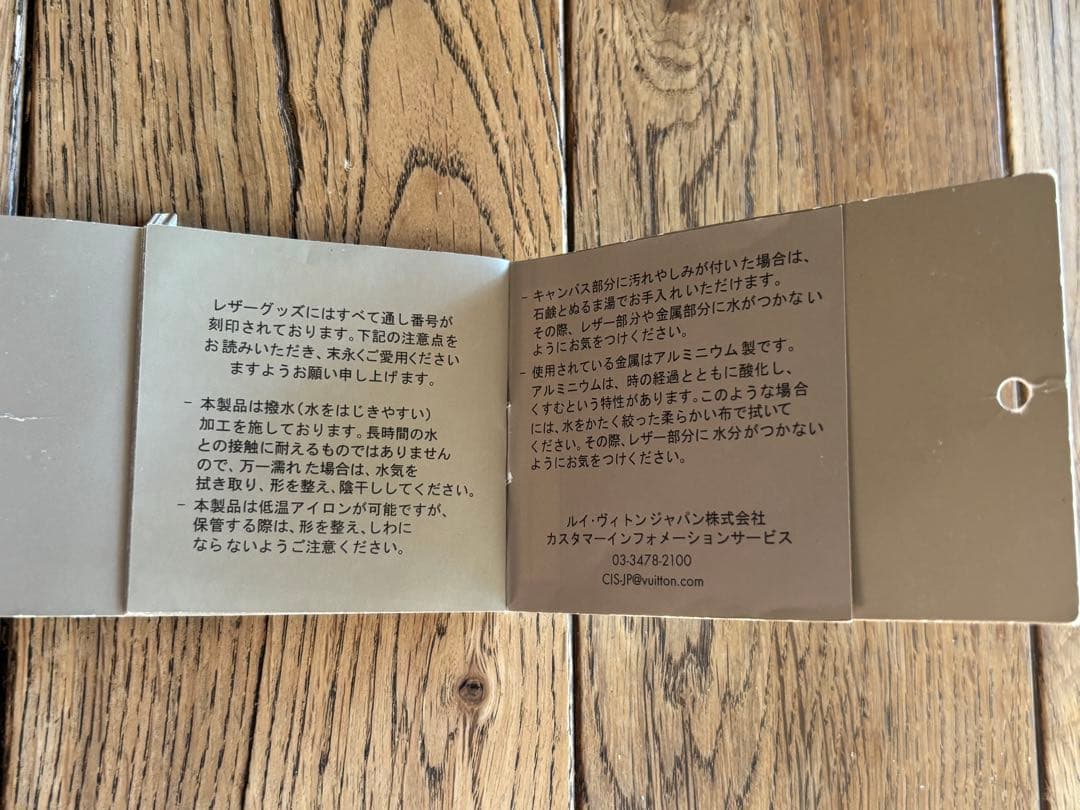 レザーグッズにはすべて通し番号が
刻印されております。下記の注意点を
お読みいただき、末永くご愛用ください
ますようお願い申し上げます。
– 本製品は撥水(水をはじきやすい)
加工を施しております。長時間の水
との接触に耐えるものではありません
ので、万一濡れた場合は、水気を
拭き取り、形を整え、陰干ししてください。
– 本製品は低温アイロンが可能ですが、
保管する際は、形を整え、しわに
ならないようご注意ください。
– キャンバス部分に汚れやしみが付いた場合は、
石鹸とぬるま湯でお手入れいただけます。
その際、レザー部分や金属部分に水がつかない
ようにお気をつけください。
– 使用されている金属はアルミニウム製です。
アルミニウムは、時の経過とともに酸化し、
くすむという特性があります。このような場合
には、水をかたく絞った柔らかい布で拭いて
ください。その際、レザー部分に水分がつかない
ようにお気をつけください。
ルイ・ヴィトンジャパン株式会社
カスタマーインフォメーションサービス
03-3478-2100
CIS-JP@vuitton.com